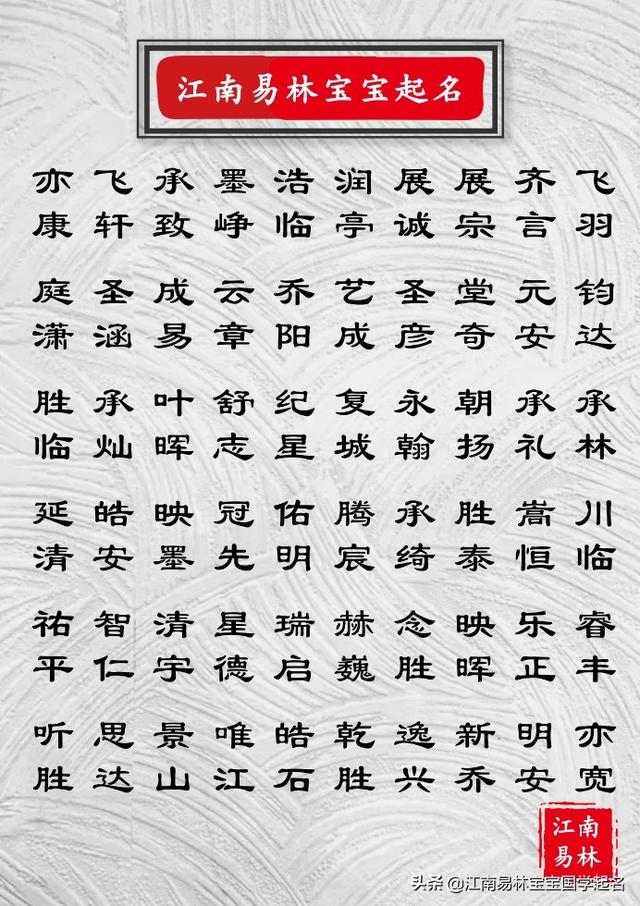 江南易林宝宝起名
亦 飞 承 墨 浩 润 展 展 齐 飞
康 轩 致 峥 临 亭 诚 宗 言 羽
庭 圣 成 云 乔 艺 圣 堂 元 钧
潇 涵 易 章 阳 成 彦 奇 安 达
胜 承 叶 舒 纪 复 永 朝 承 承
临 灿 晖 志 星 城 翰 扬 礼 林
延 皓 映 冠 佑 腾 承 胜 嵩 川
清 安 墨 先 明 宸 绮 泰 恒 临
祐 智 清 星 瑞 赫 念 映 乐 睿
平 仁 宇 德 启 巍 胜 晖 正 丰
听 思 景 唯 皓 乾 逸 新 明 亦
胜 达 山 江 石 胜 兴 乔 安 宽
江南
易林
头条 @江南易林宝宝国学起名